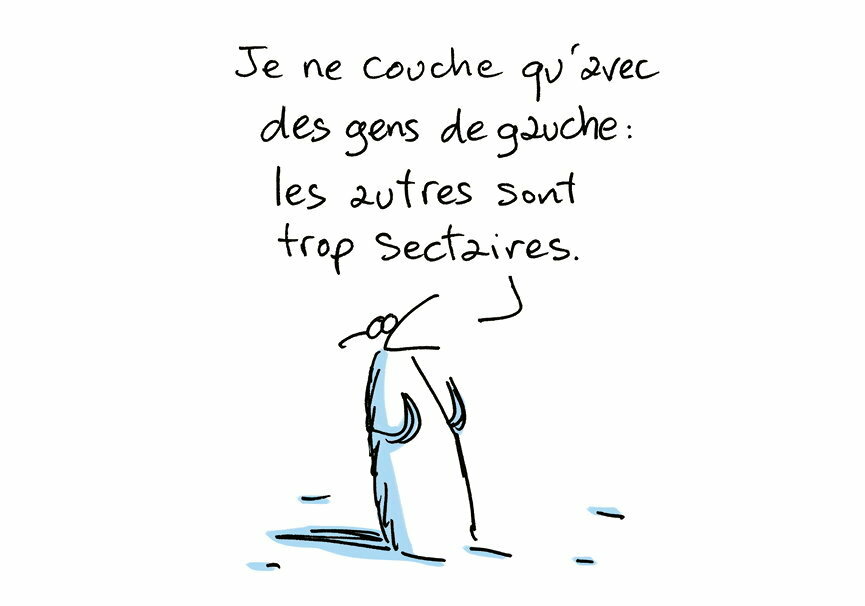 Je ne couche qu'avec
des gens de gauche :
les autres sont
trop sectaires.